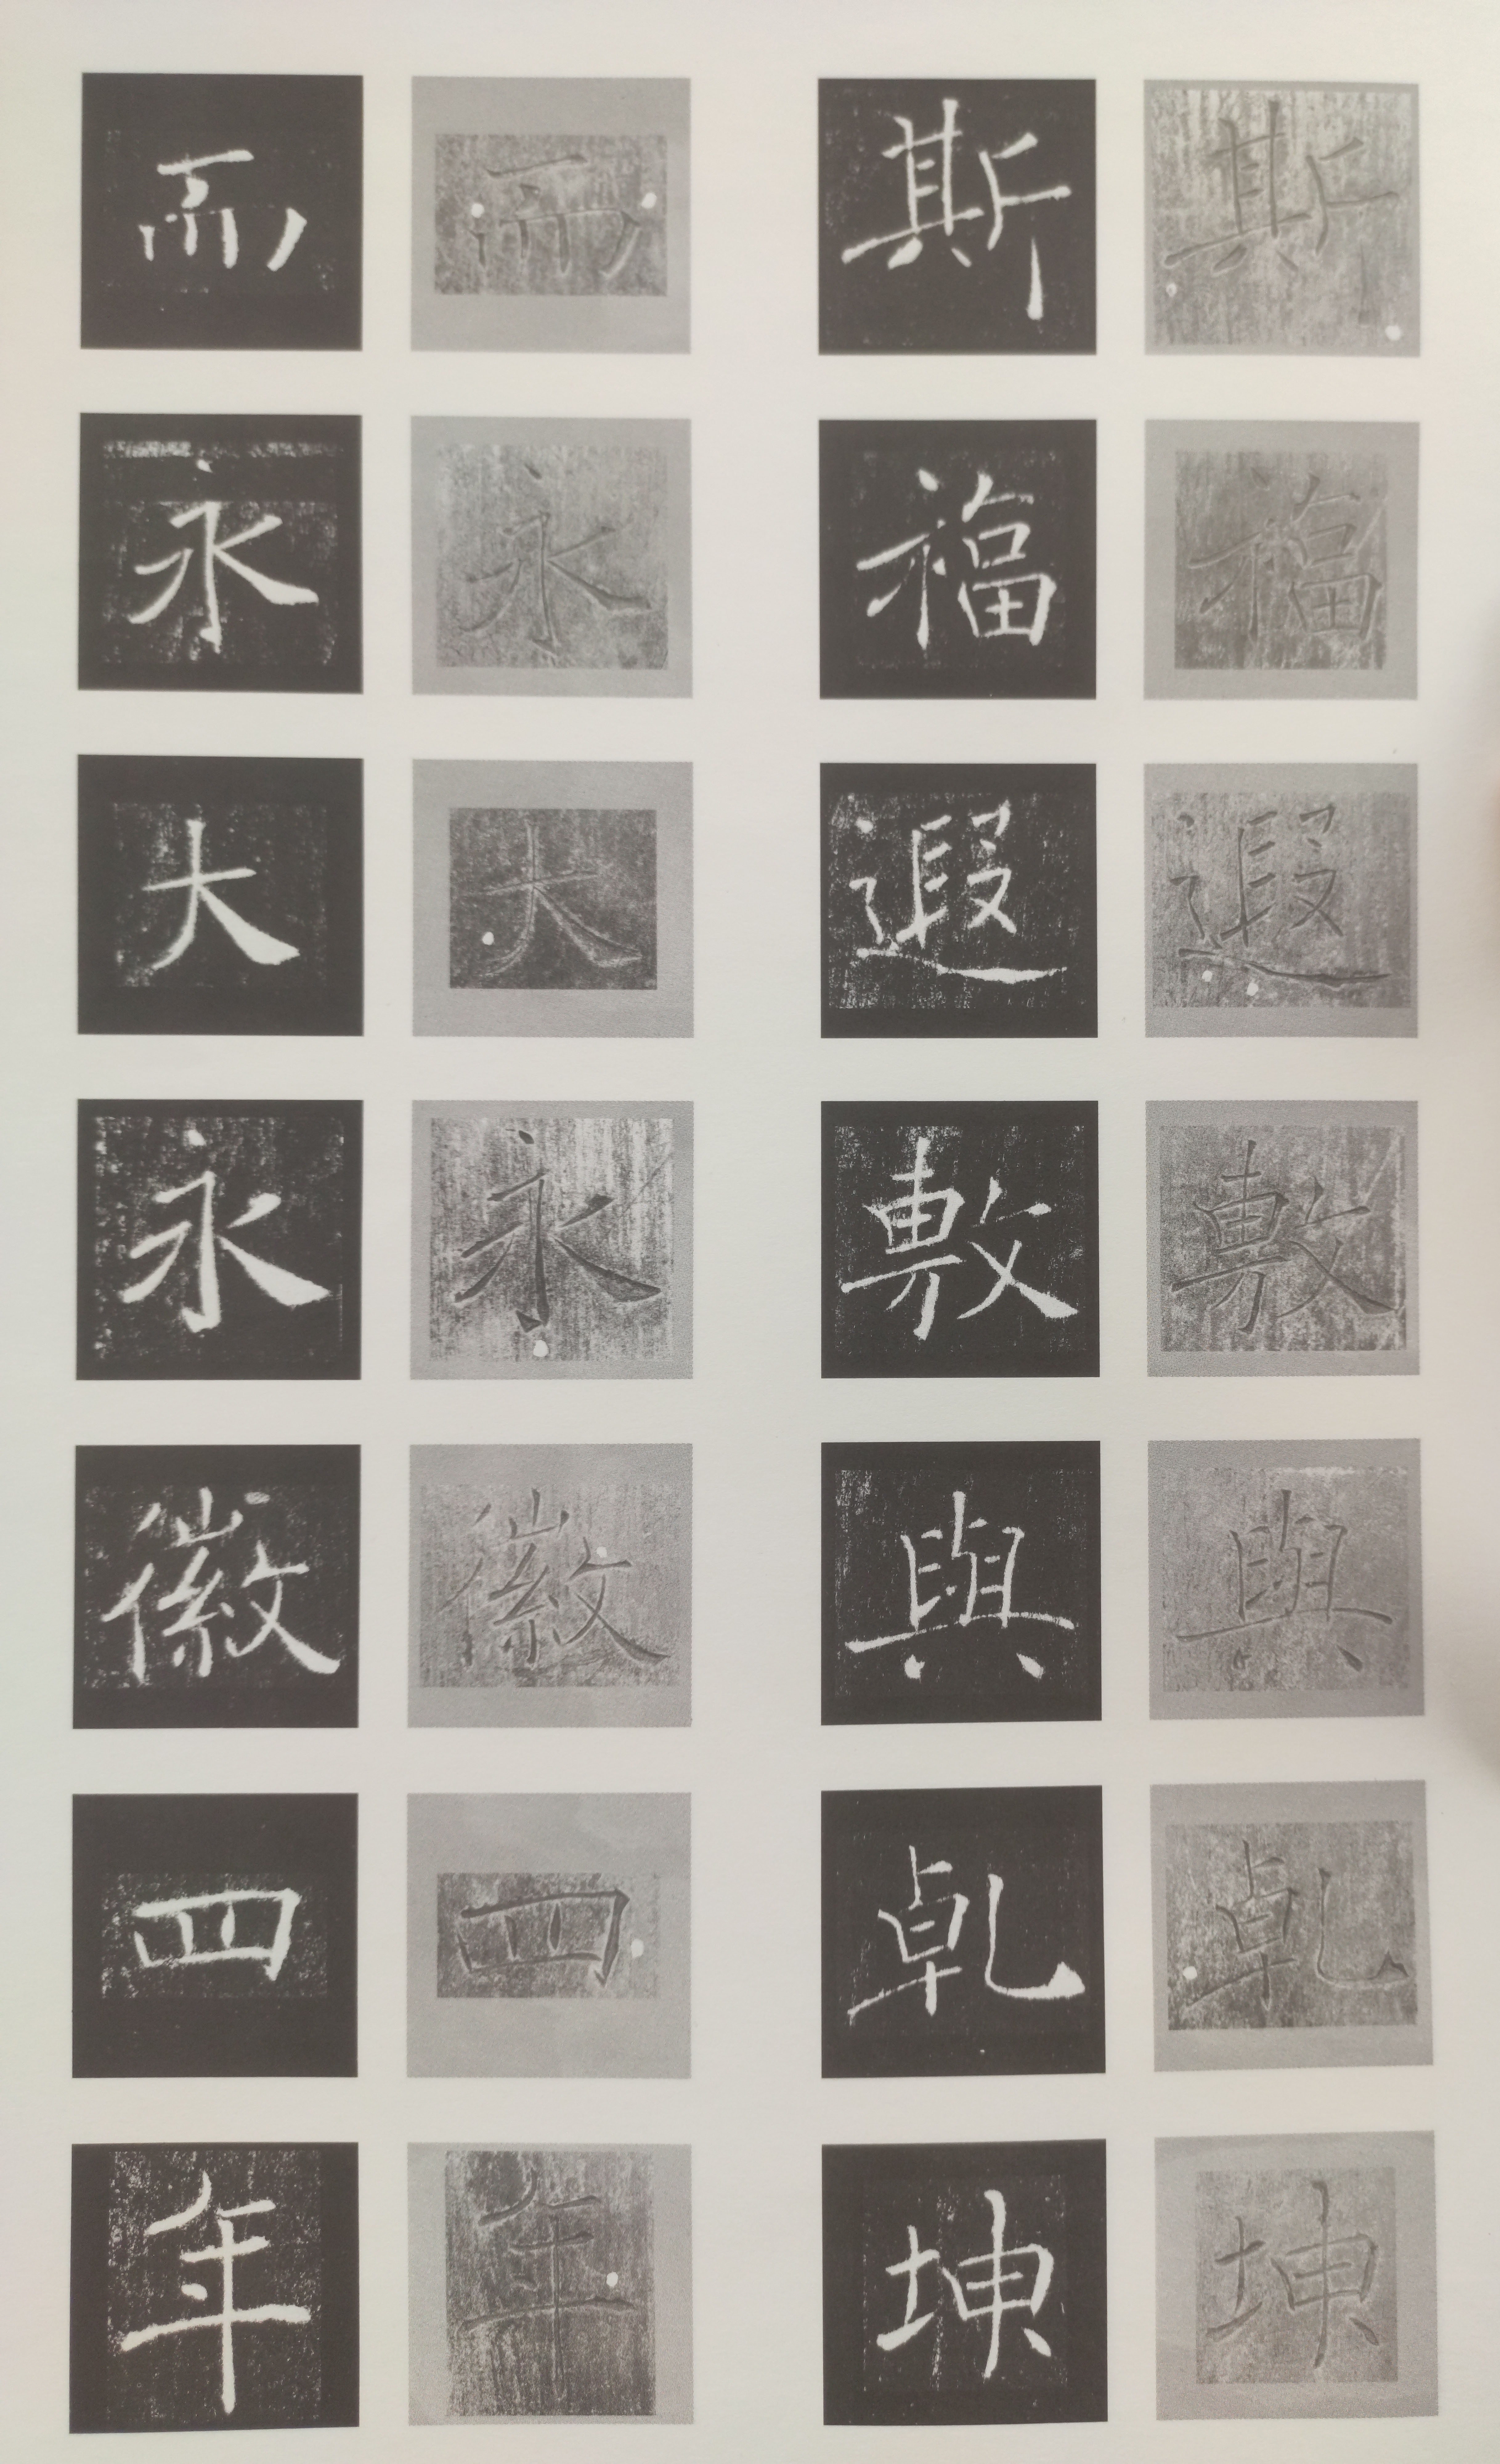 斯福遐敷與乾坤
斯福遐敷與乾坤
而永大永徽四年
而永大永徽四年